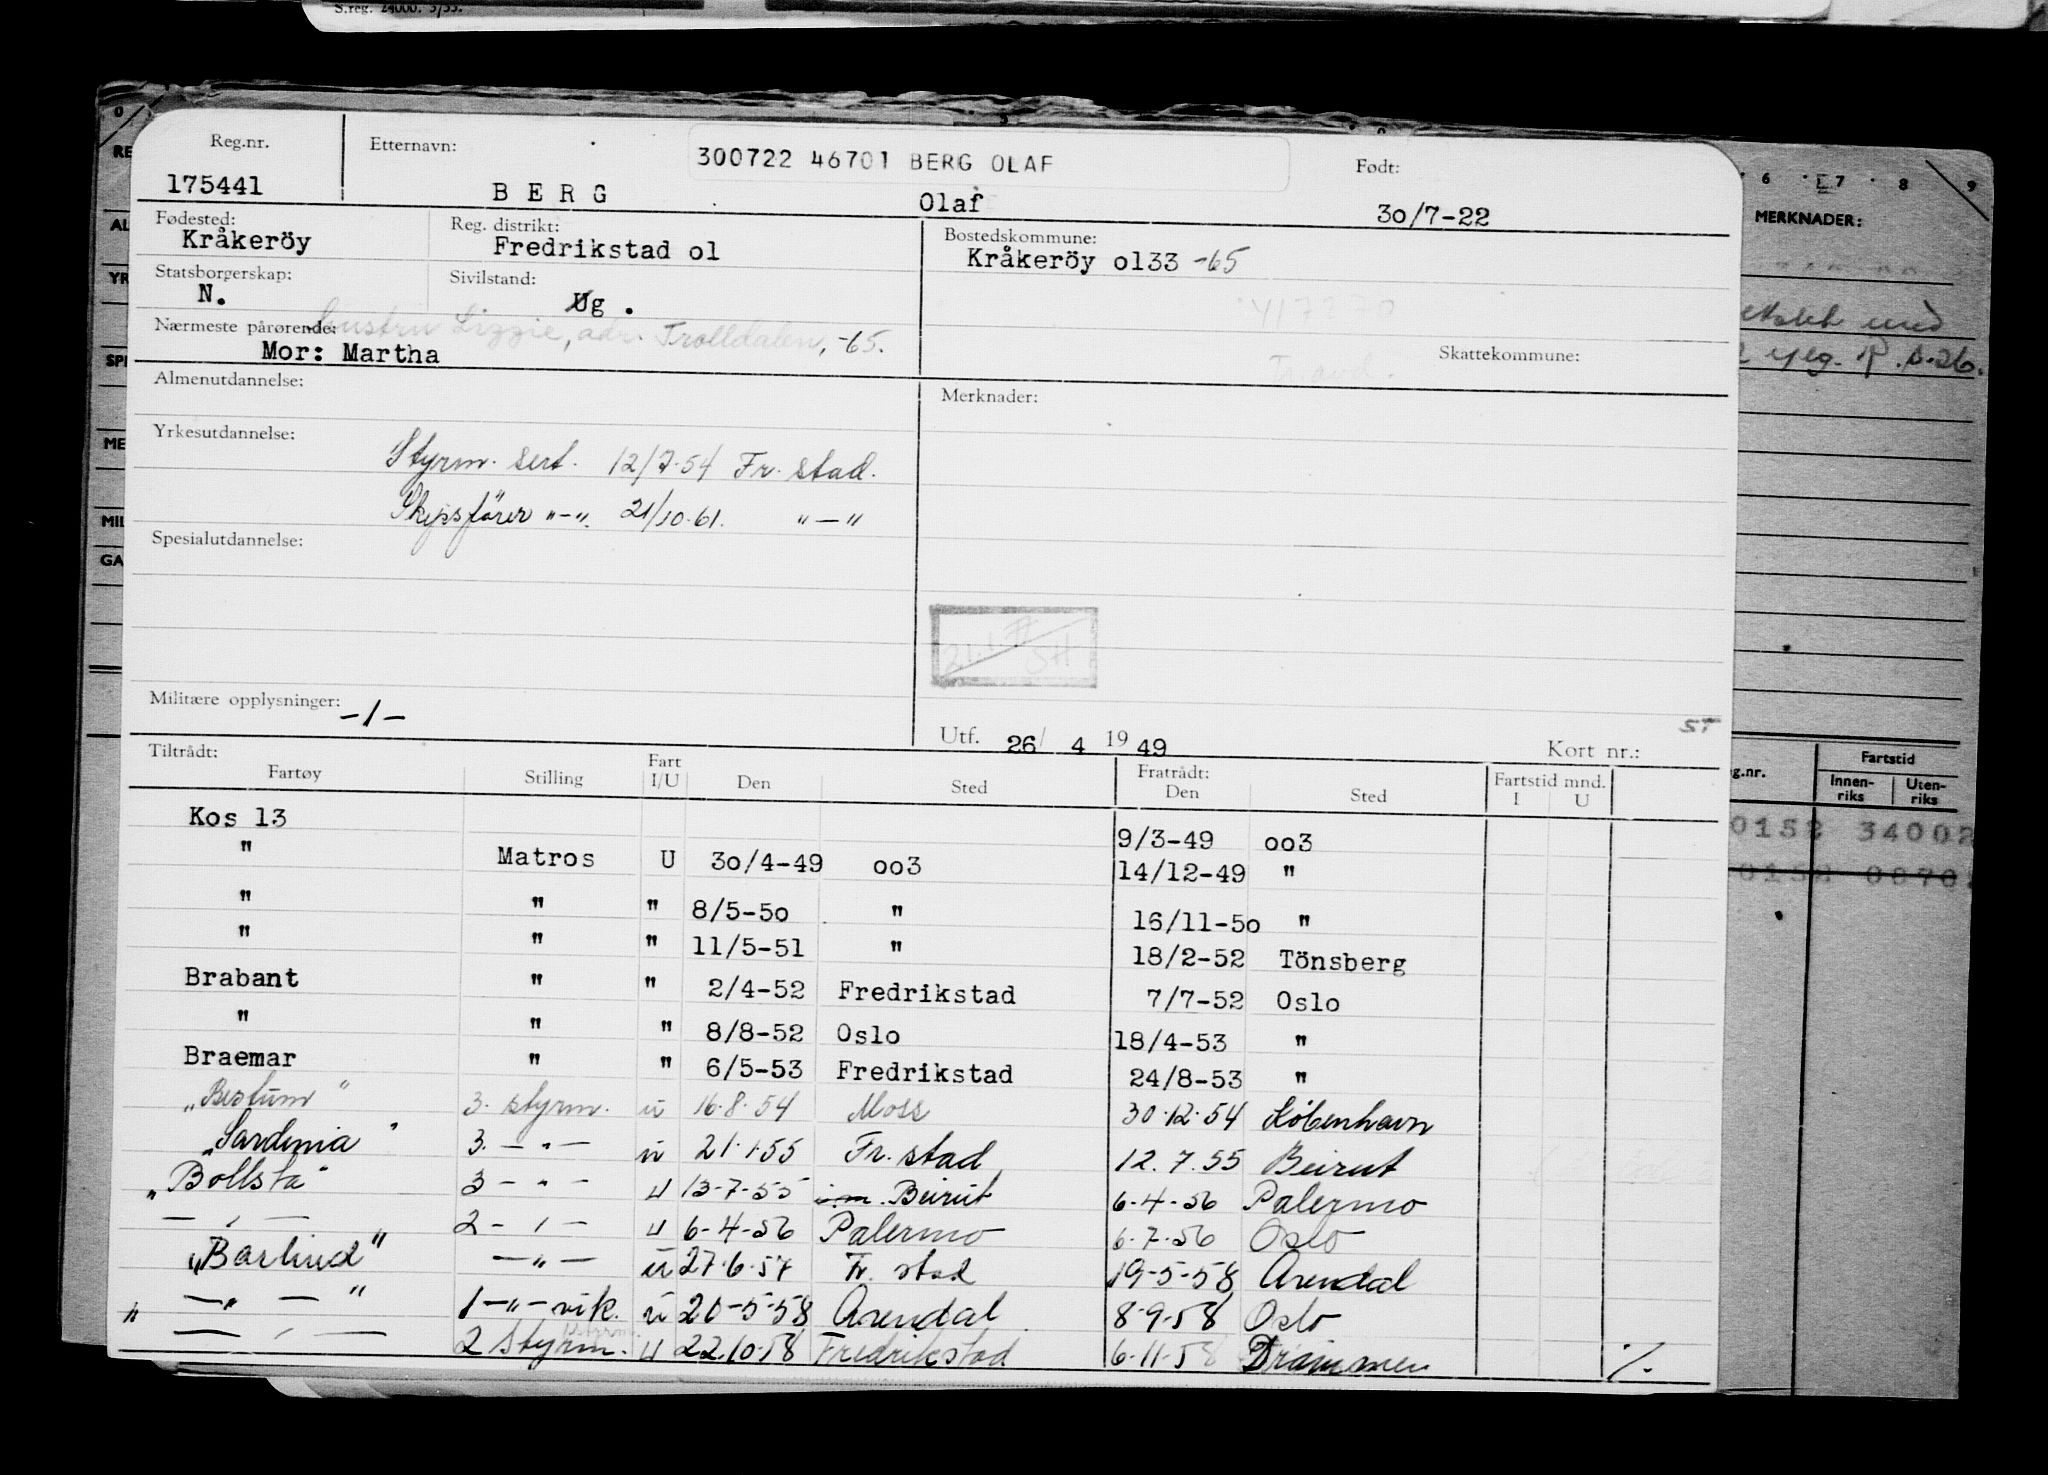 S.reg. 24000. 3/55.
Reg.nr. Etternavn: 300722 46701 BERG OLAF Født:
175441 BERG Olaf 30/7-22
Fødested: Reg. distrikt: Bostedskommune:
Kråkeröy Fredrikstad ol Kråkeröy ol33 -65
Statsborgerskap: Sivilstand:
N. Ug.
Nærmeste pårørende: Hustru Lizzie, adr. Trolldalen, -65.
Mor: Martha Skattekommune:
Almenutdannelse: Merknader:
Yrkesutdannelse:
Styrm. sert. 12/7-54 Fr. stad.
Skipsfører "-". 21/10-61. "-"
Spesialutdannelse:
Militære opplysninger: -1-
Utf. 26/ 4 1949 Kort nr.:
ST
Tiltrådt: Fratrådt:
Fartøy Stilling Fart I/U Den Sted Den Sted Fartstid mnd. I U
Kos 13 9/3-49 oo3
" Matros U 3o/4-49 oo3 14/12-49 "
" " " 8/5-5o " 16/11-5o "
" " " 11/5-51 " 18/2-52 Tönsberg
Brabant " " 2/4-52 Fredrikstad 7/7-52 Oslo
" " " 8/8-52 Oslo 18/4-53 "
Braemar " " 6/5-53 Fredrikstad 24/8-53 "
"Bestum" 3. styrm. u 16.8.54 Moss 30.12.54 København
"Sardinia" 3. - " - u 21.1.55 Fr. stad 12.7.55 Beirut
"Bollsta" 3 - " - u 13-7-55 Beirut 6-4-56 Palermo
- " - 2 - " - u 6-4-56 Palermo 6-7-56 Oslo
"Barlind" - " - u 27.6.57 Fr. stad 19-5-58 Arendal
" - " - " 1 - " - vik. u 20-5-58 Arendal 8-9-58 Oslo
- " - 2 Styrm. u 22.10.58 Fredrikstad 6-11-58 Drammen %
6 7 8 9
MERKNADER:
Fartstid
Innen-riks Uten-riks
0152 34002